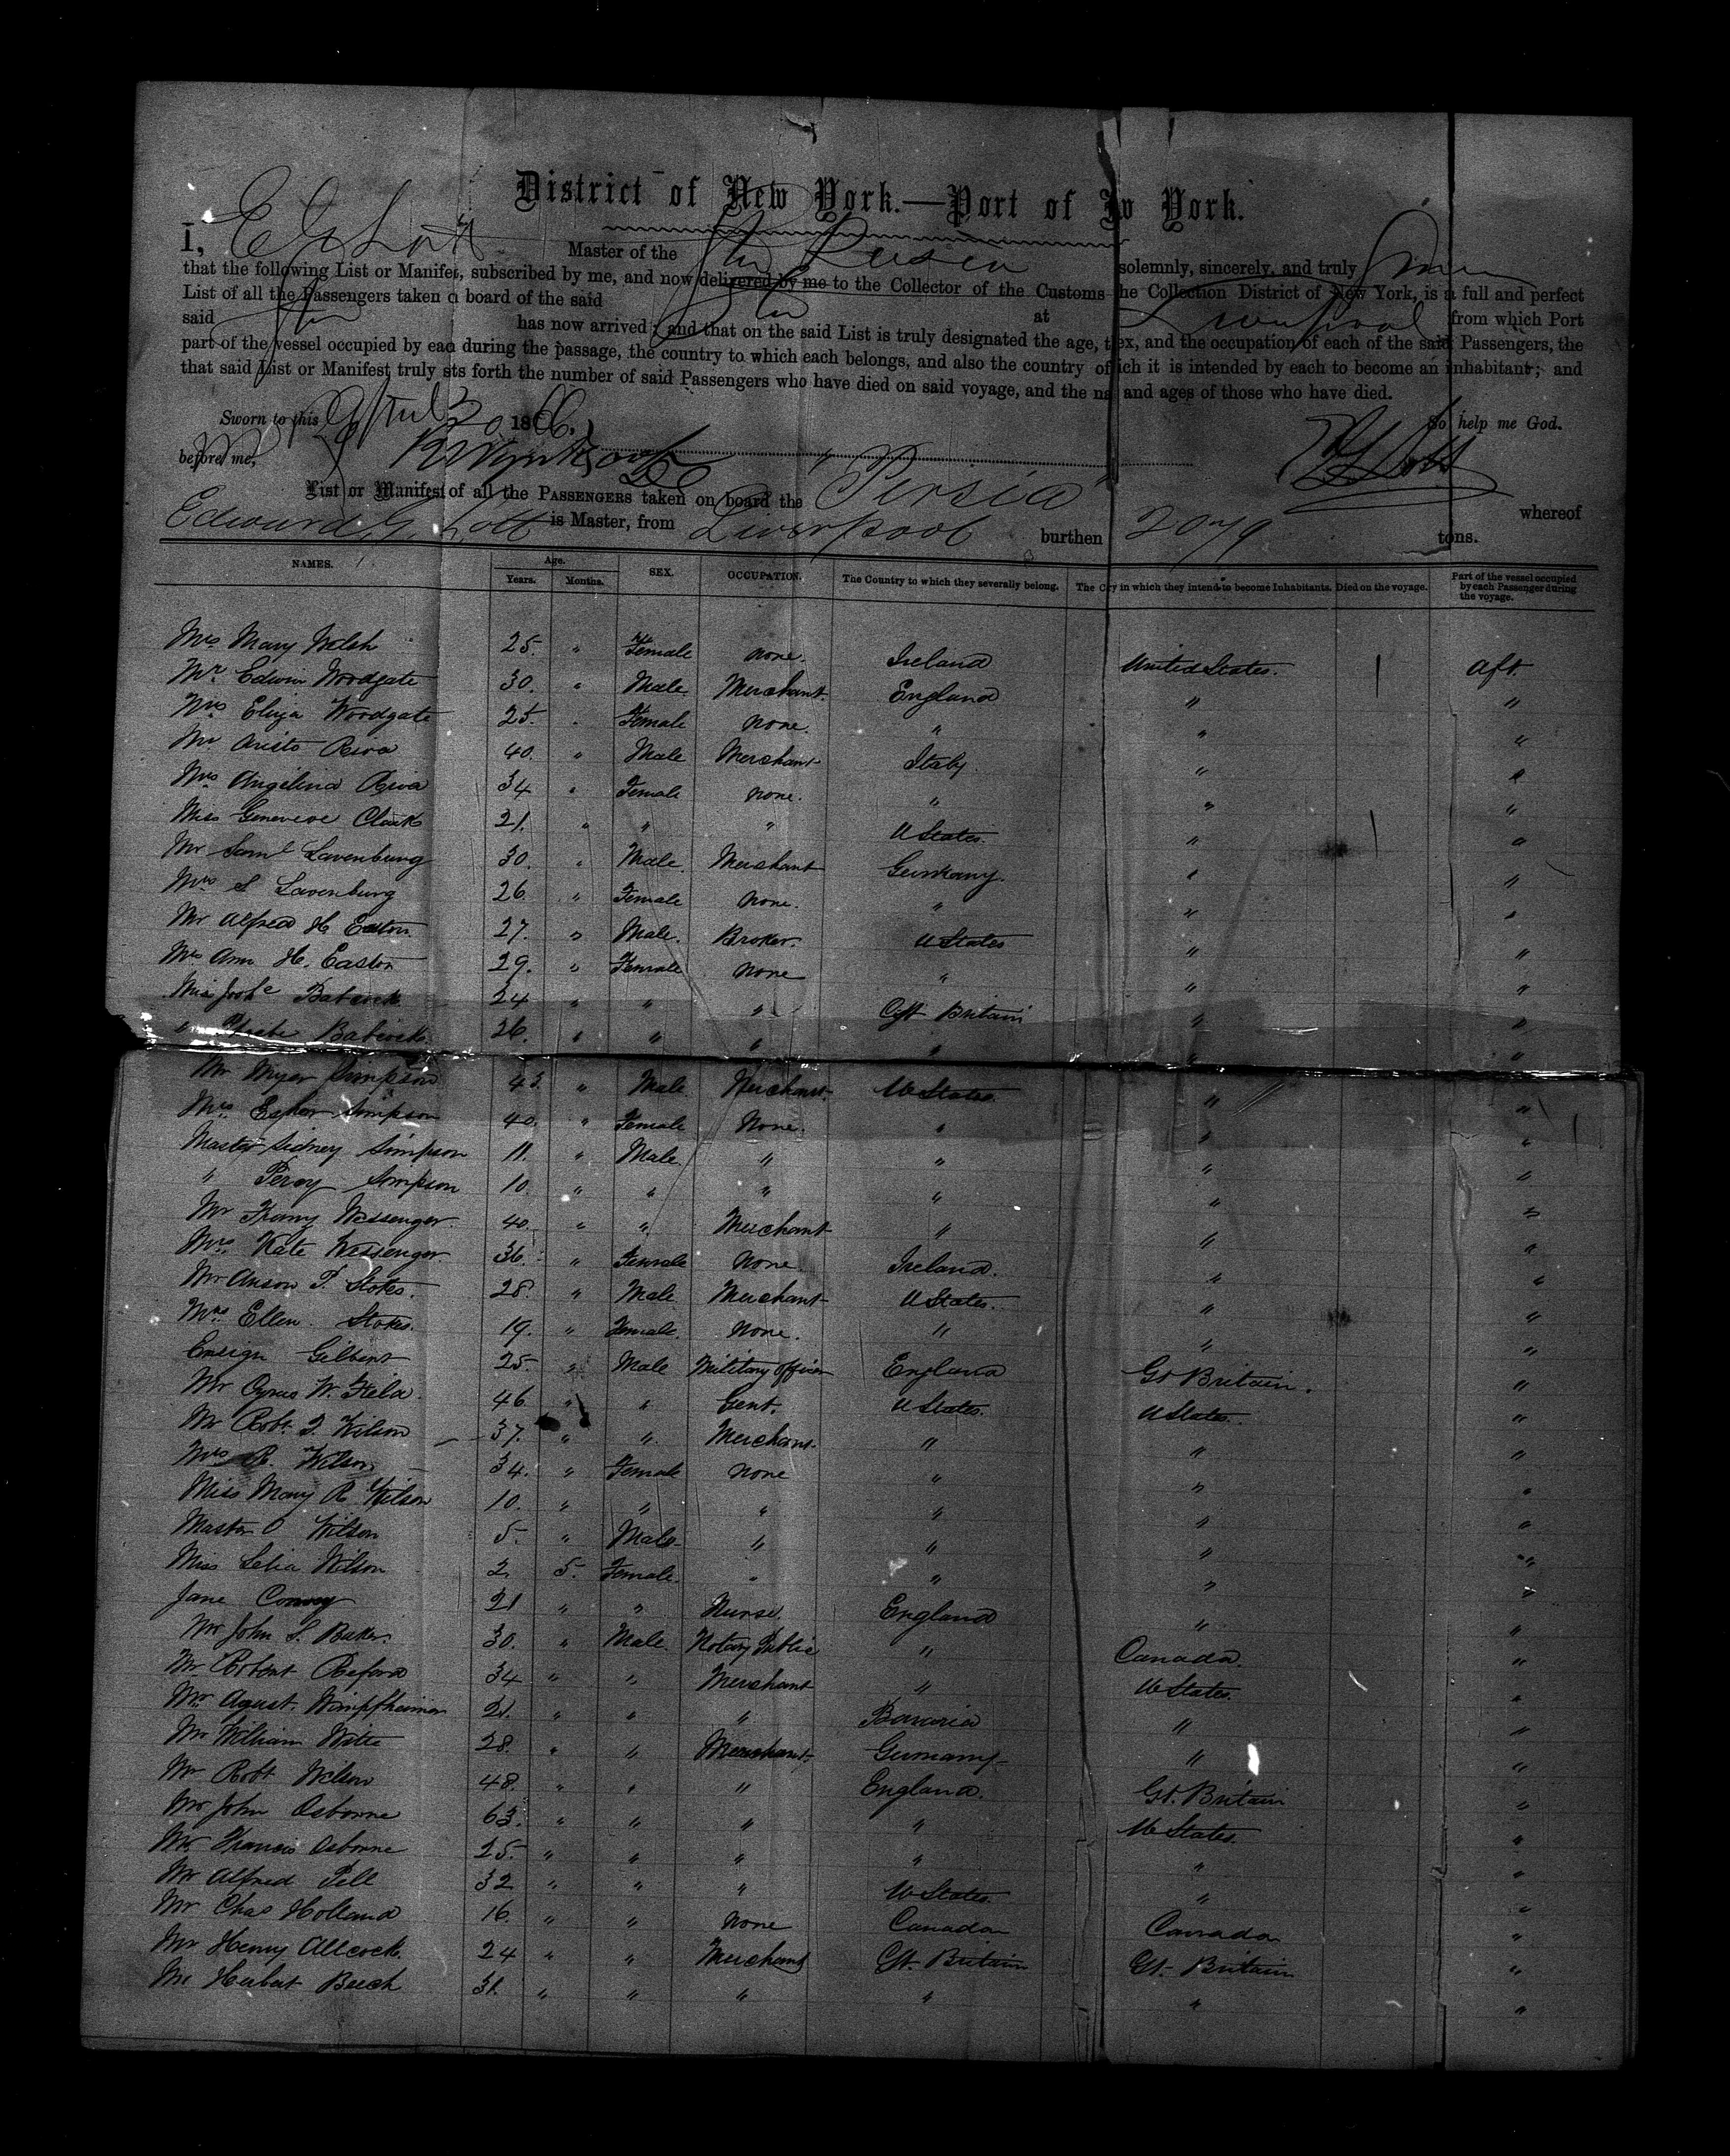 District of New York.—Port of Nw York.
I, E G Lott Master of the Str Persia solemnly, sincerely, and truly Swear
that the following List or Manifest, subscribed by me, and now delivered by me to the Collector of the Customs the Collection District of New York, is a full and perfect
List of all the Passengers taken on board of the said Str at Liverpool from which Port
said Str has now arrived; and that on the said List is truly designated the age, the sex, and the occupation of each of the said Passengers, the
part of the vessel occupied by each during the passage, the country to which each belongs, and also the country of which it is intended by each to become an inhabitant; and
that said List or Manifest truly sets forth the number of said Passengers who have died on said voyage, and the na and ages of those who have died.
Sworn to this April 1866. So help me God.
before me, E G Lott
List or Manifest of all the PASSENGERS taken on board the "Persia" whereof
Edward G. Lott is Master, from Liverpool burthen 2079 tons.
NAMES. Age. Years. Months. SEX. OCCUPATION. The Country to which they severally belong. The Cry in which they intend to become Inhabitants. Died on the voyage. Part of the vessel occupied by each Passenger during the voyage.
Mrs Mary Welsh 25. " Female none. Ireland United States. Aft.
Mr Edwin Woodgate 30. " Male Merchant England " "
Mrs Eliza Woodgate 25. " Female none. " " "
Mr Aristo Riva 40. " Male Merchant Italy " "
Mrs Angelina Riva 34 " Female none. " " "
Miss Genevieve Clark 21. " " " U States. " "
Mr Saml Lavenburg 30. " Male. Merchant Germany. " "
Mrs S Lavenburg 26 " Female none. " " "
Mr Alfred H Easton 27. " Male. Broker. U States " "
Mrs Ann H. Easton 29. " Female none " " "
Miss Babcock 24 " " " Gt Britain " "
" Babcock 26. " " " " " "
Mr Myer Simpson 43. " Male Merchant. U States. " "
Mrs Esther Simpson 40. " Female None. " " "
Master Sidney Simpson 11. " Male. " " " "
" Percy Simpson 10. " " " " " "
Mr Messenger. 40. " " Merchant " " "
Mrs Kate Messenger. 36. " Female None. Ireland. " "
Mr Anson P. Stokes. 28. " Male Merchant U States. " "
Mrs Ellen Stokes. 19. " Female. None. " " "
Ensign Gilbert 25. " Male Military Officer England Gt Britain. "
Mr Cyrus W. Field. 46 " " Gent. U States. U States. "
Mr Robt. Wilson 37. " " Merchant. " " "
Mrs R. Wilson 34. " Female none " " "
Miss Mary R Wilson 10. " " " " " "
Master O Wilson 5. " Male " " " "
Miss Lelia Wilson 2. 5. Female. " " " "
Jane Conway 21 " " Nurse. England " "
Mr John S. Baker. 30. " Male. Notary Public " Canada. "
Mr Robert Reford 34 " " Merchant " U States. "
Mr Agust. Wimpfheimer 21. " " " Bavaria " "
Mr William Witte 28. " " Merchant. Germany " "
Mr Robt Wilson 48. " " " England. Gt. Britain "
Mr John Osborne 63. " " " " U States. "
Mr Francis Osborne 25. " " " " " "
Mr Alfred Pell 32 " " " U States. " "
Mr Chas Holland 16. " " None Canada Canada "
Mr Henry Allcock. 24 " " Merchant Gt. Britain Gt. Britain "
Mr Herbert Beech 31. " " " " " "